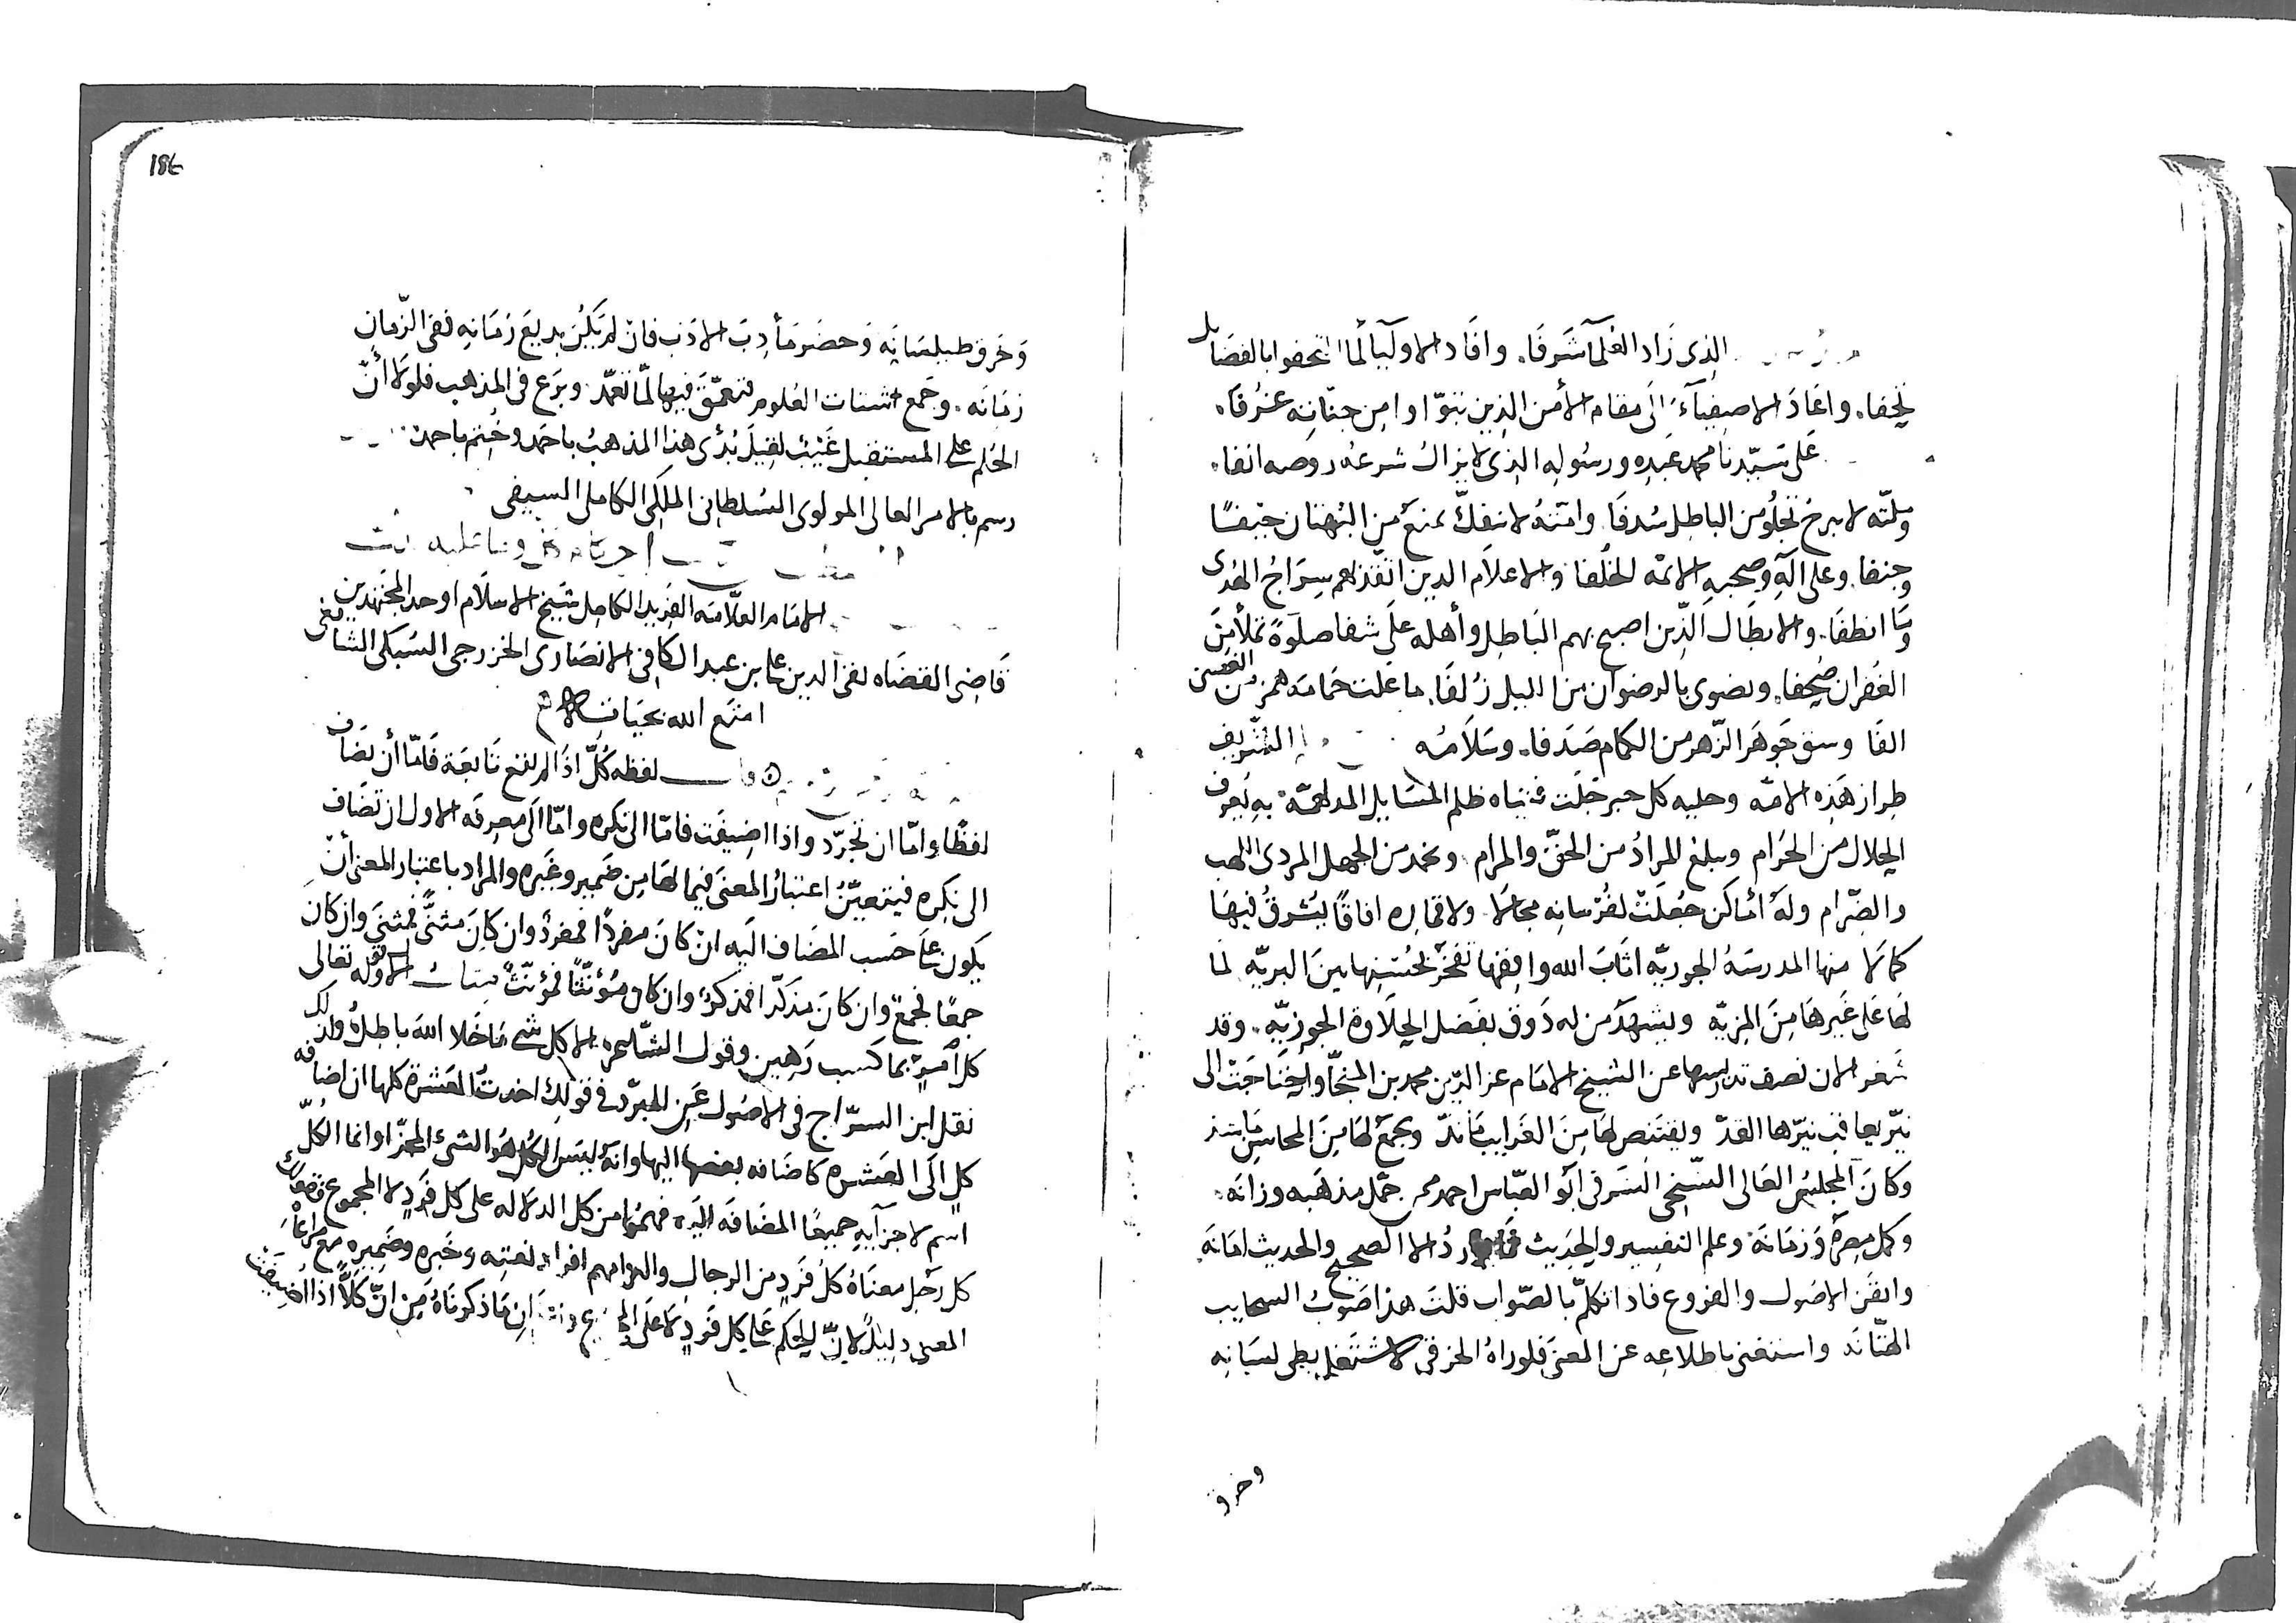 الذي زاد العلمآ شرفا. وافاد الاوليآ لما اتحفوا بالفضايل
تحفا. واعاد الاصفيآء الى مقام الأمن الذين تبوّاوا من جنانه غرفا.
على سيّدنا محمد عبده ورسوله الذى لا يزال شرعه روضه انفا.
وملّته لا يبرح تجلو من الباطل سُدفا. وامّته لا تنفكّ تمنع من البهتان حيفًا
وجنفا. وعلى آله وصحبه الائمّه الخلفا والاعلام الدين اتّقد بهم سراج الهُدى
وما انطفا. والابطال الّذين اصبح بهم الباطل وأهله على شفا صلوةً تملأ من
الغفران صُحفا. وتضوى بالرضوان من الليل زُلفا. ما علت حمامه همز من الغصن
الفا وسق جوهر الزّهر من الكمام صدفا. وسلامه الشريف
طراز هذه الامّه وحليه كل حبر جَلَت فتياه ظلم المسايل المدلهمّه به يعرف
الحلال من الحرام ويبلغ المرادُ من الحقّ والمرام. وتخمد من الجهل المردى اللهب
والضّرام وله أماكن جُعلت لفُرسانه مجالا. ولاقماره افاقًا يُشرق فيها
كمالا منها المدرسهُ الجوزيّه اثاب الله واقفها تفخر بحُسنها بين البريّه لما
لها على غيرها من المزيّه ويشهد من له ذوق بفضل الحلاوة الجوزيّه. وقد
شغر الان نصف تدريسها عن الشيخ الامام عز الدّين محمد بن المنجّا واحتاجت الى
وكان المجلس العالى الشّيخى الشرفى ابو العبّاس احمد ممن جمّل مذهبه وزانه.
وكمل مصره وزمانه. وعلم التفسير والحديث الا الصحيح والحديث امانه
واتقن الاصول والفروع فاذا تكلم بالصّواب قلت هذا صَوبُ السحايب
الهتّانه واستغنى باطلاعه عن المعنى فلوراهُ الخرقى لاشتغل بطى لسانه
وخرق
184
وخرق طيلسانه وحضر مأدبَ الادب فان لم يكُن بديعَ زمانه ففى الزّمان
زمانه. وجمع اشتات العلوم فتعمّق فيها لمّا تعمّد. وبرع فى المذهب فلولا أنّ
الحُلم على المستقبل غَيْبٌ لقيل بُدىَ هذا المذهبُ باحمد وخُتم باحمد
رسم بالامر العالى المولوى السُلطانى الملكى الكاملى السيفى
الامام العلّامه الفريد الكامل شيخ الاسلام اوحد المجتهدين
قاضى القضاه تقى الدين على بن عبد الكافى الانصارى الخزرجى السّبكى الشافعى
امتع الله بحياته
لفظه كُلّ اذا لم تقع تابعة فامّا أن تضاف
لفظًا وامّا ان تجرّد واذا اضيفت فامّا الى نكره وامّا الى معرفه الاول ان تضاف
الى نكره فيتعيّن اعتبارُ المعنى فيما لها من ضمير وغيره والمراد باعتبار المعنى أنْ
يكون على حسب المضاف اليه انْ كان مفردًا فمفردٌ وان كان مثنًّى فمثنى وان كان
جمعًا فجمعٌ وان كان مذكّرا فمذكرٌ وان كان مؤنّثًا فمؤنّثٌ مثالُ الاول قوله تعالى
كل امرئ بما كسب رهين وقول الشّاعر الا كل شى ما خلا الله باطلُ ولذلك
نقل ابن السرّاج فى الاصول عن المبرّد فى قولك اخدتُ العشرة كلها ان اضافه
كل الى العشره كاضافه بعضها اليها وانه ليس الكل هو الشىء المجزّا وانما الكلّ
اسم لاجزآيه جميعًا المضافه اليه ففهموا من كل الدلاله على كل فردٍ لا المجموع فقولك
كل رجلٍ معناهُ كلُ فردٍ من الرجال والتزامهم افراد نعته وخبره وضميره مع مراعاة
المعنى دليلٌ لانّ الحكم على كل فردٍ لا على ان ما ذكرناه من انّ كلاًّ اذا اضيفت